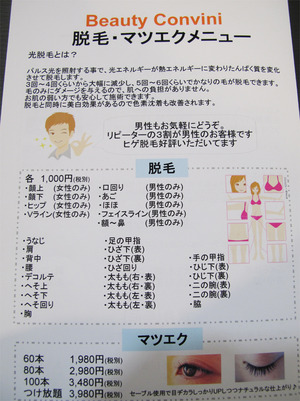 Beauty Convini
脱毛・マツエクメニュー
光脱毛とは？
パルス光を照射する事で，光エネルギーが熱エネルギーに変わりたんぱく質を変化
させて脱毛します。
3回〜4回くらいから大幅に減少し，5回〜6回くらいでかなりの毛が脱毛できます。
毛のみにダメージを与えるので，肌への負担がありません。
お肌の弱い方でも安心して施術できます。
脱毛と同時に美白効果があるので色素沈着も改善されます。
男性もお気軽にどうぞ。
リピーターの3割が男性のお客様です
ヒゲ脱毛好評いただいてます
脱毛
各 1,000円(税別)
・顔上 (女性のみ)
・顔下 (女性のみ)
・ヒップ (女性のみ)
・Vライン(女性のみ)
・口回り (男性のみ)
・あご (男性のみ)
・ほほ (男性のみ)
・フェイスライン(男性のみ)
・額〜鼻 (男性のみ)
・うなじ
・肩
・背中
・腰
・デコルテ
・へそ上
・へそ下
・へそ回り
・胸
・足の甲指
・ひざ下(表)
・ひざ下(裏)
・ひざ回り
・太もも(右・表)
・太もも(右・裏)
・太もも(左・表)
・太もも(左・裏)
・手の甲指
・ひじ下(表)
・ひじ下(裏)
・二の腕(表)
・二の腕(裏)
・脇
マツエク
60本 1,980円(税別)
80本 2,980円(税別)
100本 3,480円(税別)
つけ放題 3,980円(税別)
セーブル使用で目ヂカラしっかりUPしつつナチュラルな仕上がり♪